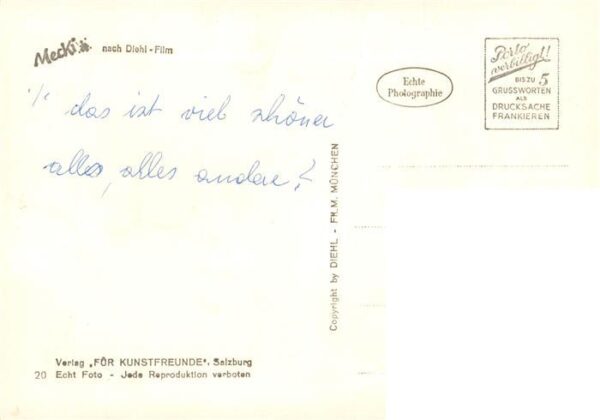 Mecki nach Diehl-Film
Echte
Photographie
Porto
verbilligt!
BIS ZU 5
GRUSSWORTEN
ALS
DRUCKSACHE
FRANKIEREN
das ist viel schöner
alles, alles andere!
Copyright by DIEHL - FILM. MÜNCHEN
Verlag „FÜR KUNSTFREUNDE“, Salzburg
20 Echt Foto - Jede Reproduktion verboten